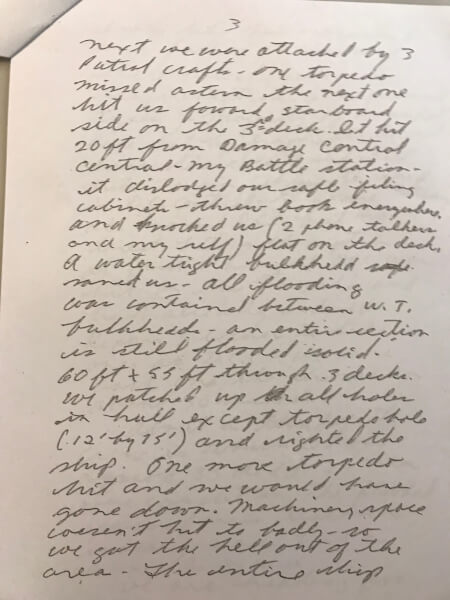 3
next we were attacked by 3
Patrol crafts - one torpedo
missed astern the next one
hit us foward starboard
side on the 3rd deck. It hit
20 ft from Damage Control
central - my Battle station -
it dislodged our safe filing
cabinets - threw book everywhere,
and knocked us (2 phone talkers
and my self) flat on the deck.
A water tight bulkhead
saved us - all flooding
was contained between W.T.
bulkheads - an entire section
is still flooded solid.
60 ft x 55 ft through 3 decks.
We patched up all holes
in hull except torpedo hole
(12' by 15') and righted the
ship. One more torpedo
hit and we would have
gone down. Machinery space
wasen't hit to badly - so
we got the hell out of the
area - The entire ship